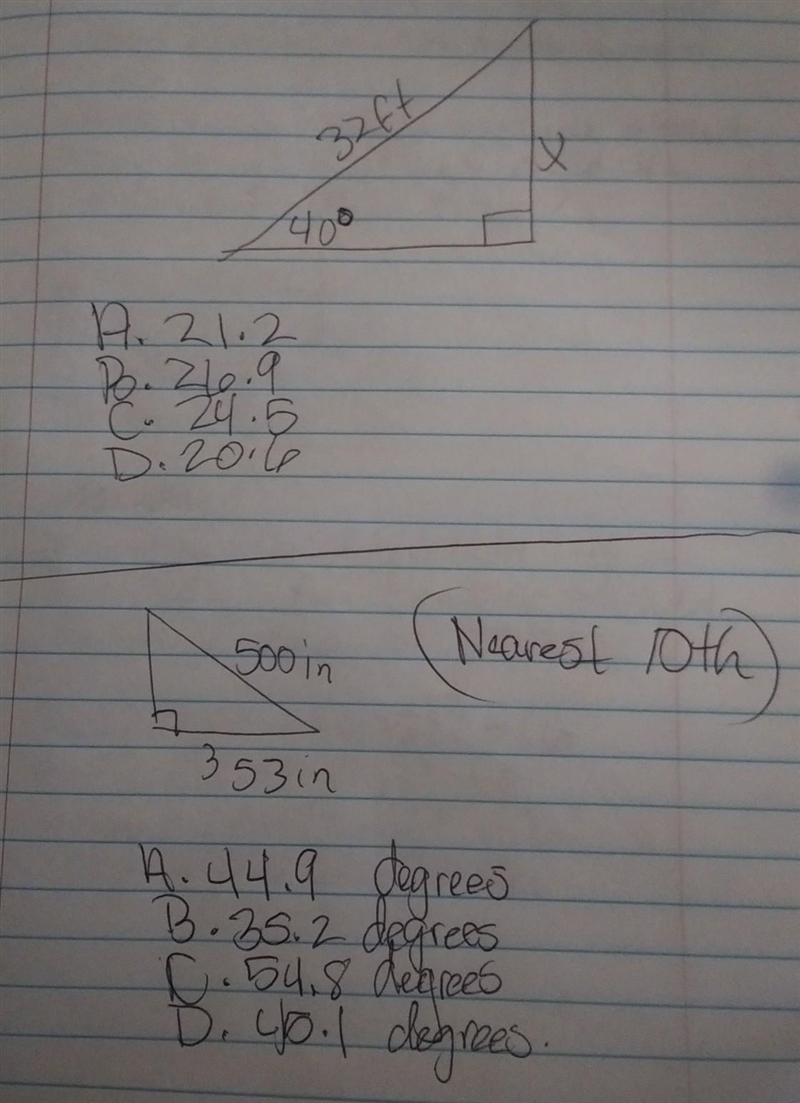 32ft
X
40°
A. 21.2
B. 26.9
C. 24.5
D. 20.6
500in
(Nearest 10th)
353in
A. 44.9 degrees
B. 35.2 degrees
C. 54.8 degrees
D. 40.1 degrees.